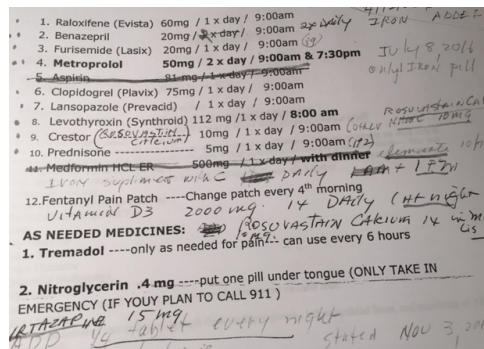 IRON ADDE
1. Raloxifene (Evista) 60mg / 1 x day / 9:00am
2. Benazepril 20mg / 2 x day / 9:00am 2x Daily
3. Furisemide (Lasix) 20mg / 1 x day / 9:00am
July 8, 2016
4. Metroprolol 50mg / 2 x day / 9:00am & 7:30pm
only 1 Iron pill
5. Aspirin 81 mg / 1 x day / 9:00am
6. Clopidogrel (Plavix) 75mg / 1 x day / 9:00am
7. Lansopazole (Prevacid) / 1 x day / 9:00am
8. Levothyroxin (Synthroid) 112 mg / 1 x day / 8:00 am
9. Crestor 10mg / 1 x day / 9:00am (other NAME 10mg
10. Prednisone ---- 5mg / 1 x day / 9:00am
11. Medformin HCL ER 500mg / 1 x day / with dinner
Iron supliments with C Daily 1 PM
12.Fentanyl Pain Patch ----Change patch every 4th morning
Vitamin D3 2000 mg. 1x Daily (At night
AS NEEDED MEDICINES: Rosuvastain Calcium 1x
1. Tremadol ----only as needed for pain-- can use every 6 hours
2. Nitroglycerin .4 mg ----put one pill under tongue (ONLY TAKE IN
EMERGENCY (IF YOUY PLAN TO CALL 911 )
15 mg
ADD tablet every night
stated Nov 3, 20